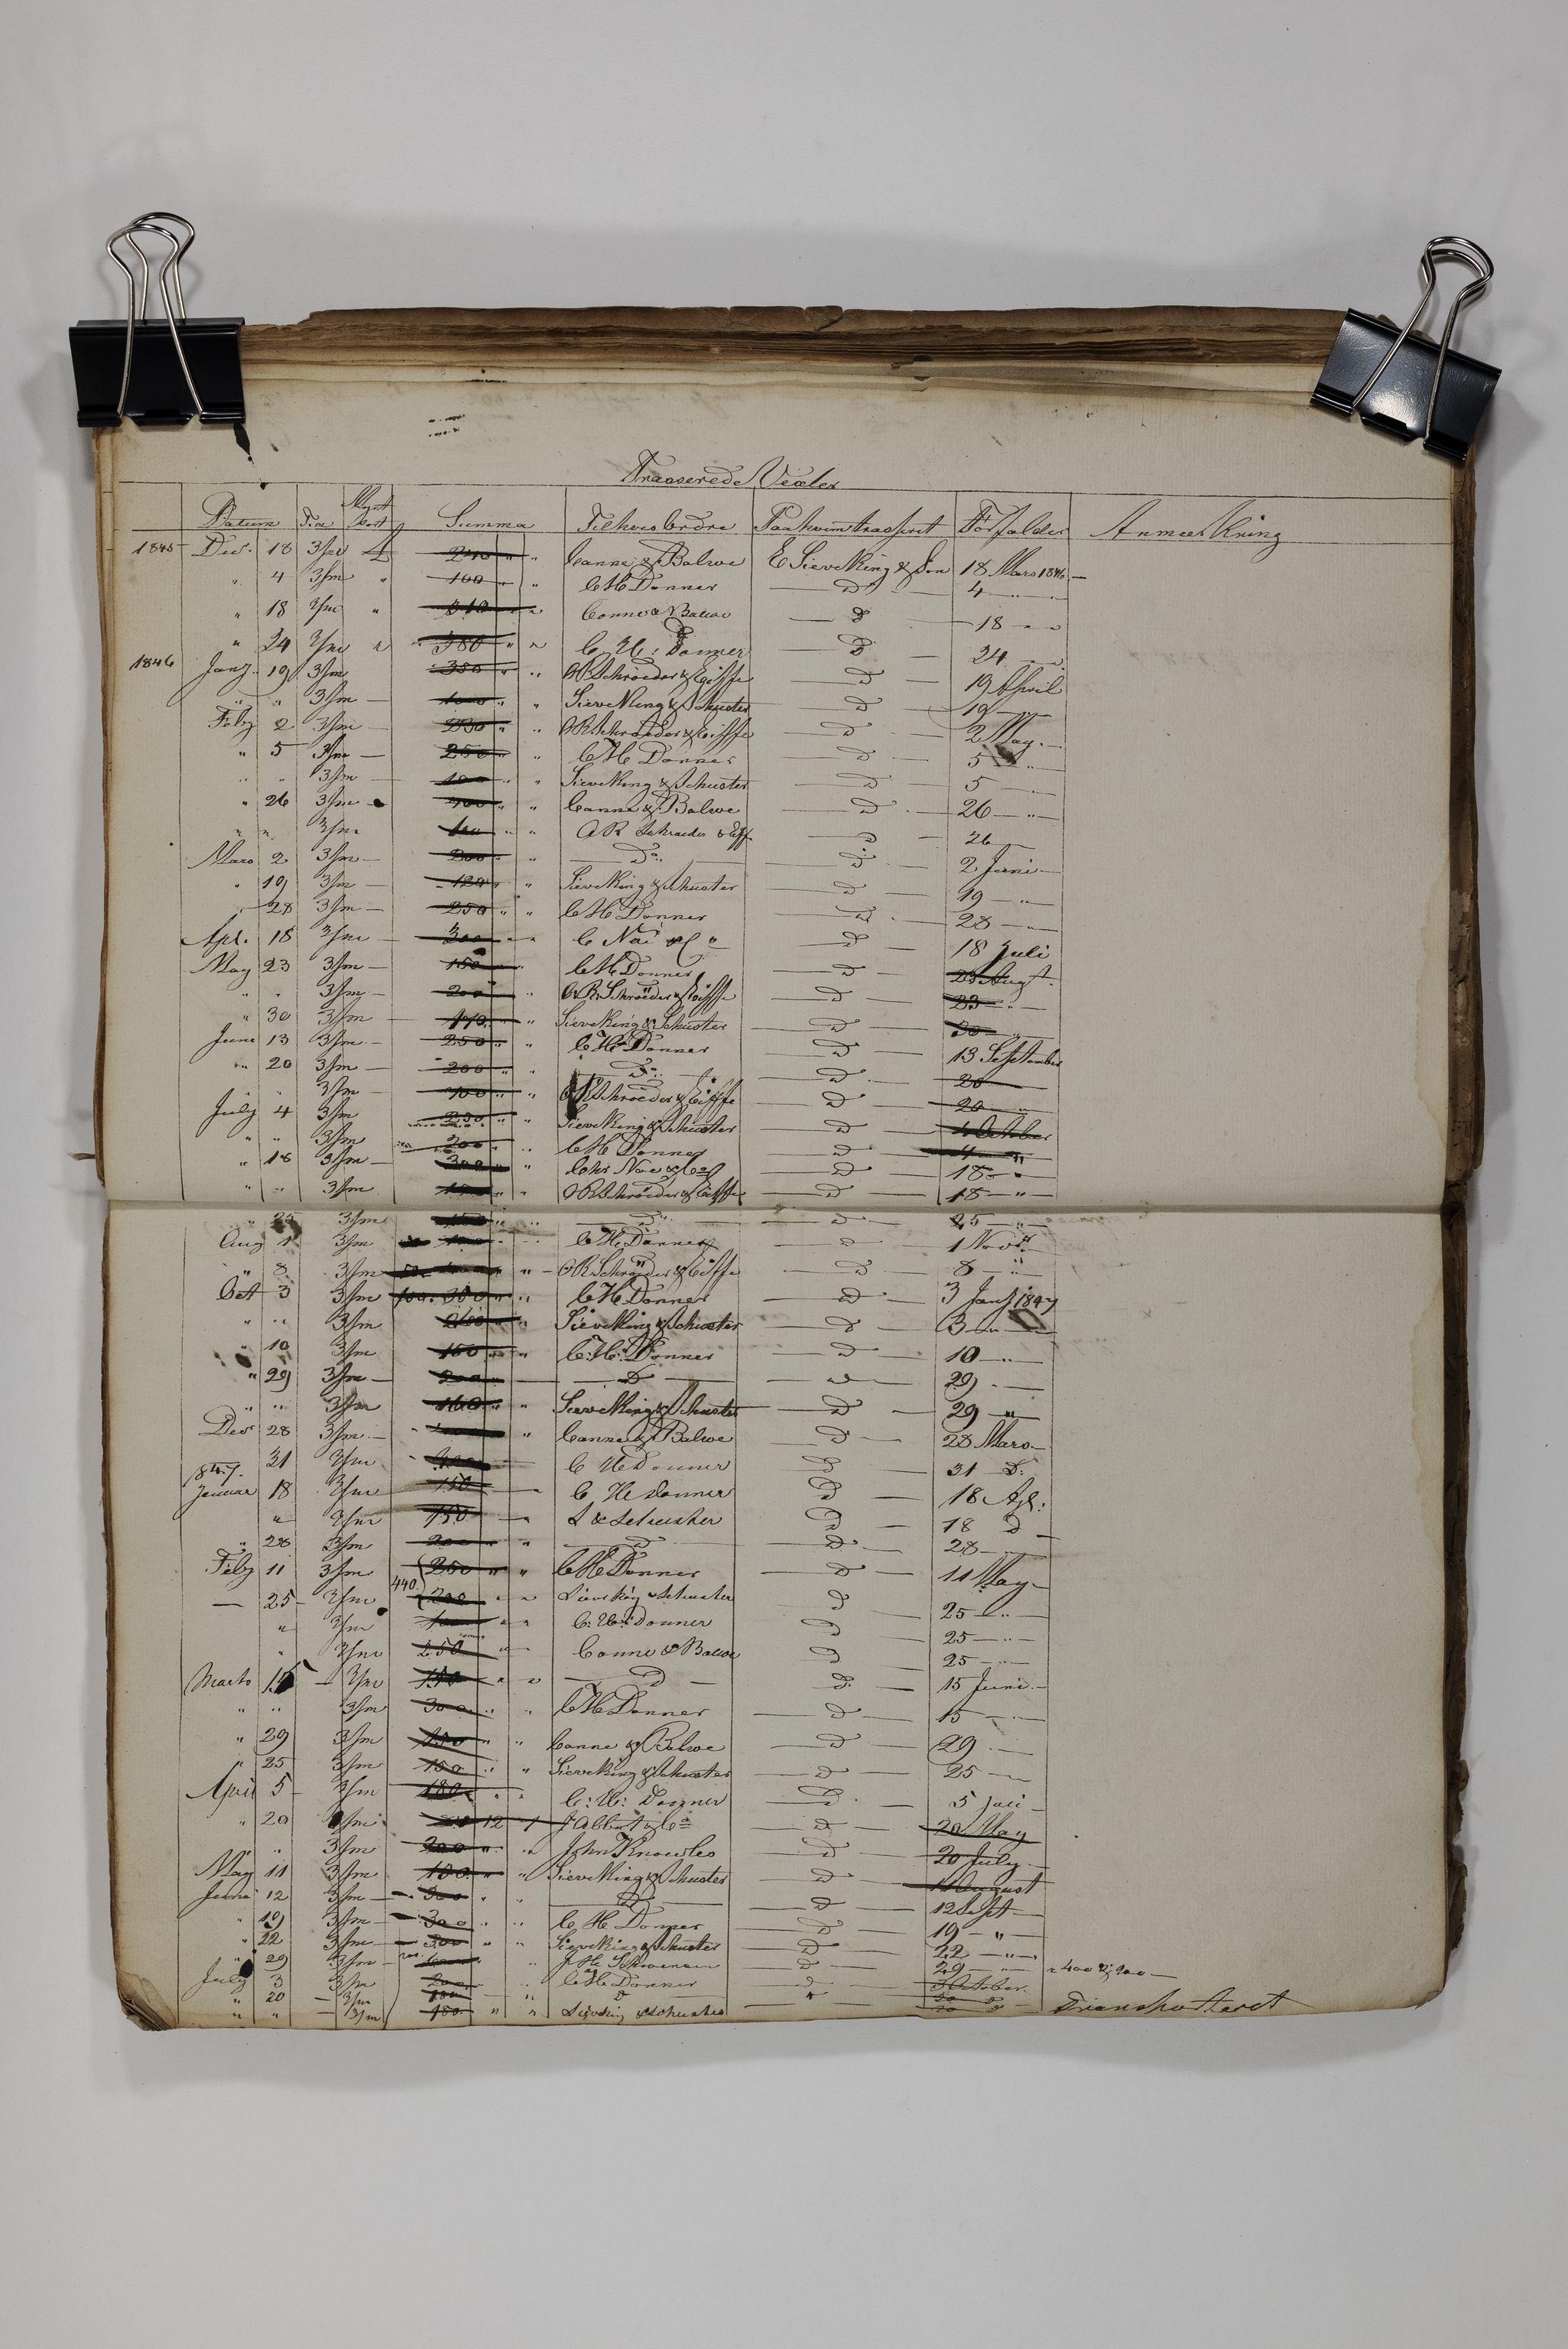 Trasserede Vexler
Datum Tid Mynt Sort Summa Til hvis Ordre Paa hvem trasseret Forfalder Anmerkning
1845 Decr. 18 3/m £ " " Canne & Balwe E Sieveking & Son 18 Mars 1846
" 4 3/m " 100 " " C H Donner D 4 "
" 18 3/m " 310 " " Canne & Balwe D 18 "
" 24 3/m " 380 " " C. H. Donner D 24
1846 Janj. 19 3/m 350 " " O R Schröeder & Eiffe D 19 April
" " 3/m " " Sieveking & Schuster D 19
Feby 2 3/m " " O R Schröeder & Eiffe D 2 May
" 5 3/m 250 " " C H Donner D 5 "
" " 3/m 100 " " Sieveking & Schuster D 5
" 26 3/m " " Canne & Balwe D 26 "
" " 3/m 100 " " O R Schroeder & Eiff D 26
Mars 2 3/m 200 " " Do D 2 Juni
" 19 3/m 120 " " Sieveking & Schuster D 19 "
" 28 3/m 250 " " C H Donner D 28 "
Apl. 18 3/m 300 " " C D 18 Juli
May 23 3/m 150 " " C H Donner D 23 Augt.
" " 3/m 200 " " O R Schröeder & Eiffe D 23 "
" 30 3/m 170 " " Sieveking & Schuster D 30 "
June 13 3/m 250 " " C H Donner D 13 September
" 20 3/m 200 " " Do D 20
" " 3/m 100 " " O R Schröeder & Eiffe D 20 "
July 4 3/m 250 " " Sieveking & Schuster D 4 October
" " 3/m 200 " " C H Donner D 4 "
" 18 3/m 300 " " Chr D 18 "
" " 3/m " " O R Schröeder & Eiffe D 18 "
" 25 3/m " " D D 25 "
Aug 1 3/m " " C H Donner D 1 Novr
" 8 3/m 50 " " O R Schröeder & Eiffe D 8 "
Oct 3 3/m 100 " " C H Donner D 3 Janj 1847
" " 3/m " " Sieveking & Schuster D 3 "
" 10 3/m 150 " " C. H. Donner D 10 "
" 29 3/m 200 " D D 29
" " 3/m 160 " " Sieveking & Schuster D 29 "
Decr 28 3/m " Canne & Balwe D 28 Mars
31 3/m C H Donner D 31 D.
1847.
Januar 18 3/m 150 C H Donner D 18 Apl.
" 3/m 150 " S & Schuster D 18 D
" 28 3/m 200 " " D D 28
Feby 11 3/m 250 " " C H Donner D 11 May
440.
25 3/m 200 " " Sieveking & Schuster D 25 "
" 3/m " " C. H. Donner D 25 "
" 3/m 250 " Canne & Balwe D 25 "
Marts 15 3/m 150 " " D D 15 Juni
" " 3/m 300 " " C H Donner D 15
" 29 3/m 150 " " Canne & Balwe D 29
" 25 3/m 150 " " Sieveking & Schuster D 25
April 5 3/m 180 " " C. H. Donner D 5 juli
" 20 /m 12 1 J Abbut & Co D 20 May
" " 3/m 200 " " John Knowles D 20 July
May 11 3/m 100 " " Sieveking & Schuster D 11 August
Juni 12 3/m 300 " " D D 12 Sept
" 19 3/m 300 " " C H Donner D 19 "
" 22 3/m 300 " " Sieveking & Schuster D 22 "
" 29 3/m " J H D 29 " " 400 & 200
July 3 3/m 200 " C H Donner D 3 October
" 20 3/m 100 " D " 20 D
" " 3/m 180 " " Sieveking & Schuster 20 D Transporteret